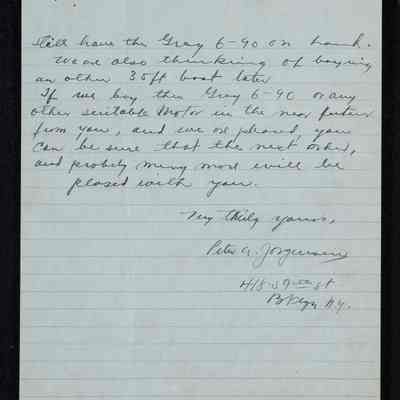 still have the Gray 6-90 on hand.
We are also thinking of buying
an other 35 ft boat later
If we buy this Gray 6-90 or any
other suitable Motor in the near future
from you, and we are pleased, you
can be sure that the next order,
and probely meny more will be
plased with you.
Very truly yours,
Peter A. Jorgensen
St
Bklyn N.Y.